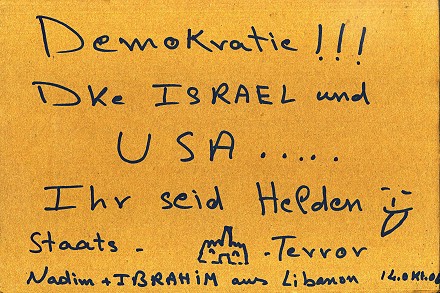 Demokratie!!!
DKe ISRAEL und
USA.....
Ihr seid Helden
Staats- -Terror
Nadim + IBRAHIM aus Libanon 14.0kt.06